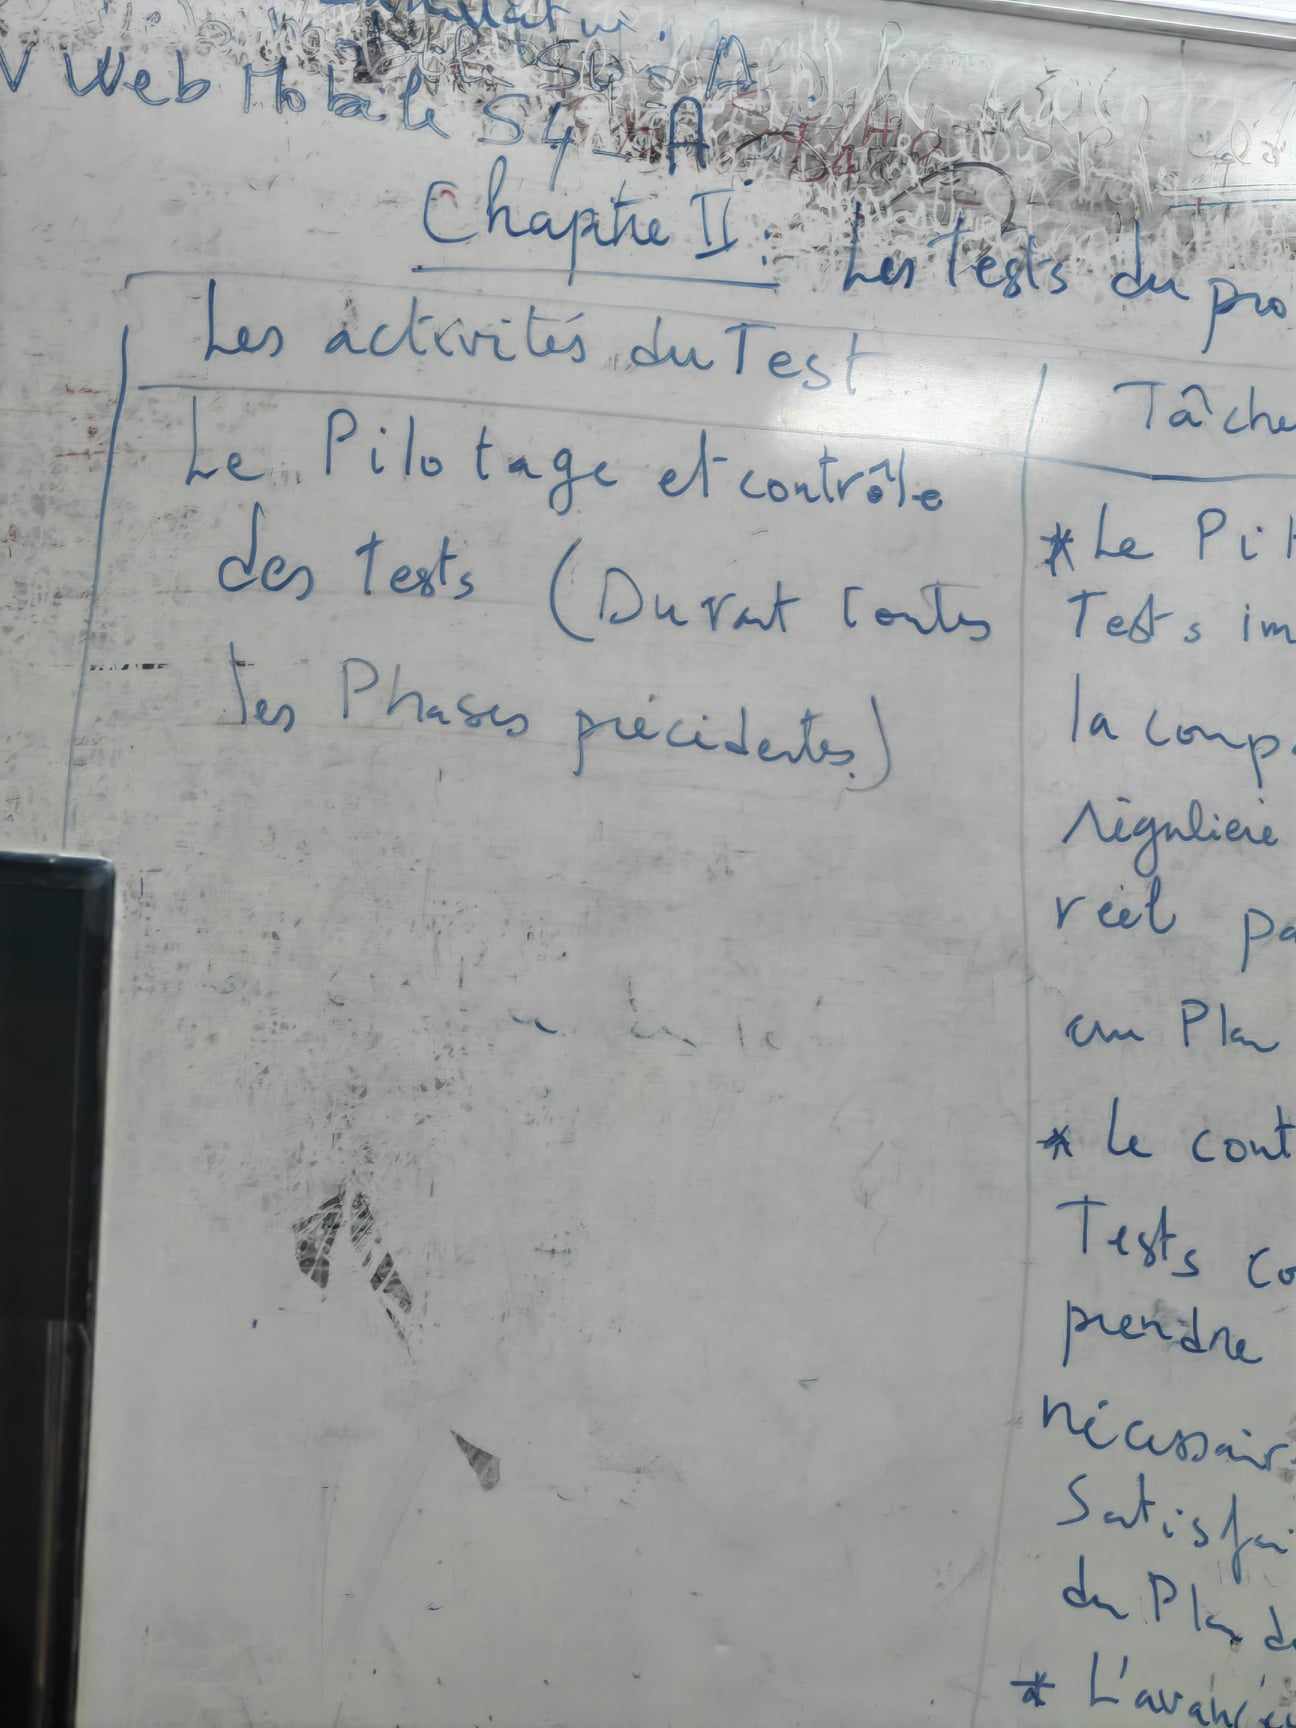 Web Mobile S4-A
Chapitre II: Les Tests du pro
Les activités du Test
Tâche
Le Pilotage et contrôle
des tests (Durant toutes
les Phases précédentes.)
* Le Pil
Tests im
la comp
régulière
réel pa
un Plan
* Le cont
Tests co
prendre
nécessair
Satisfai
du Plan de
* L'avancé